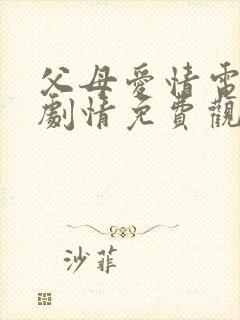 父母愛情電
劇情免費觀
沙菲